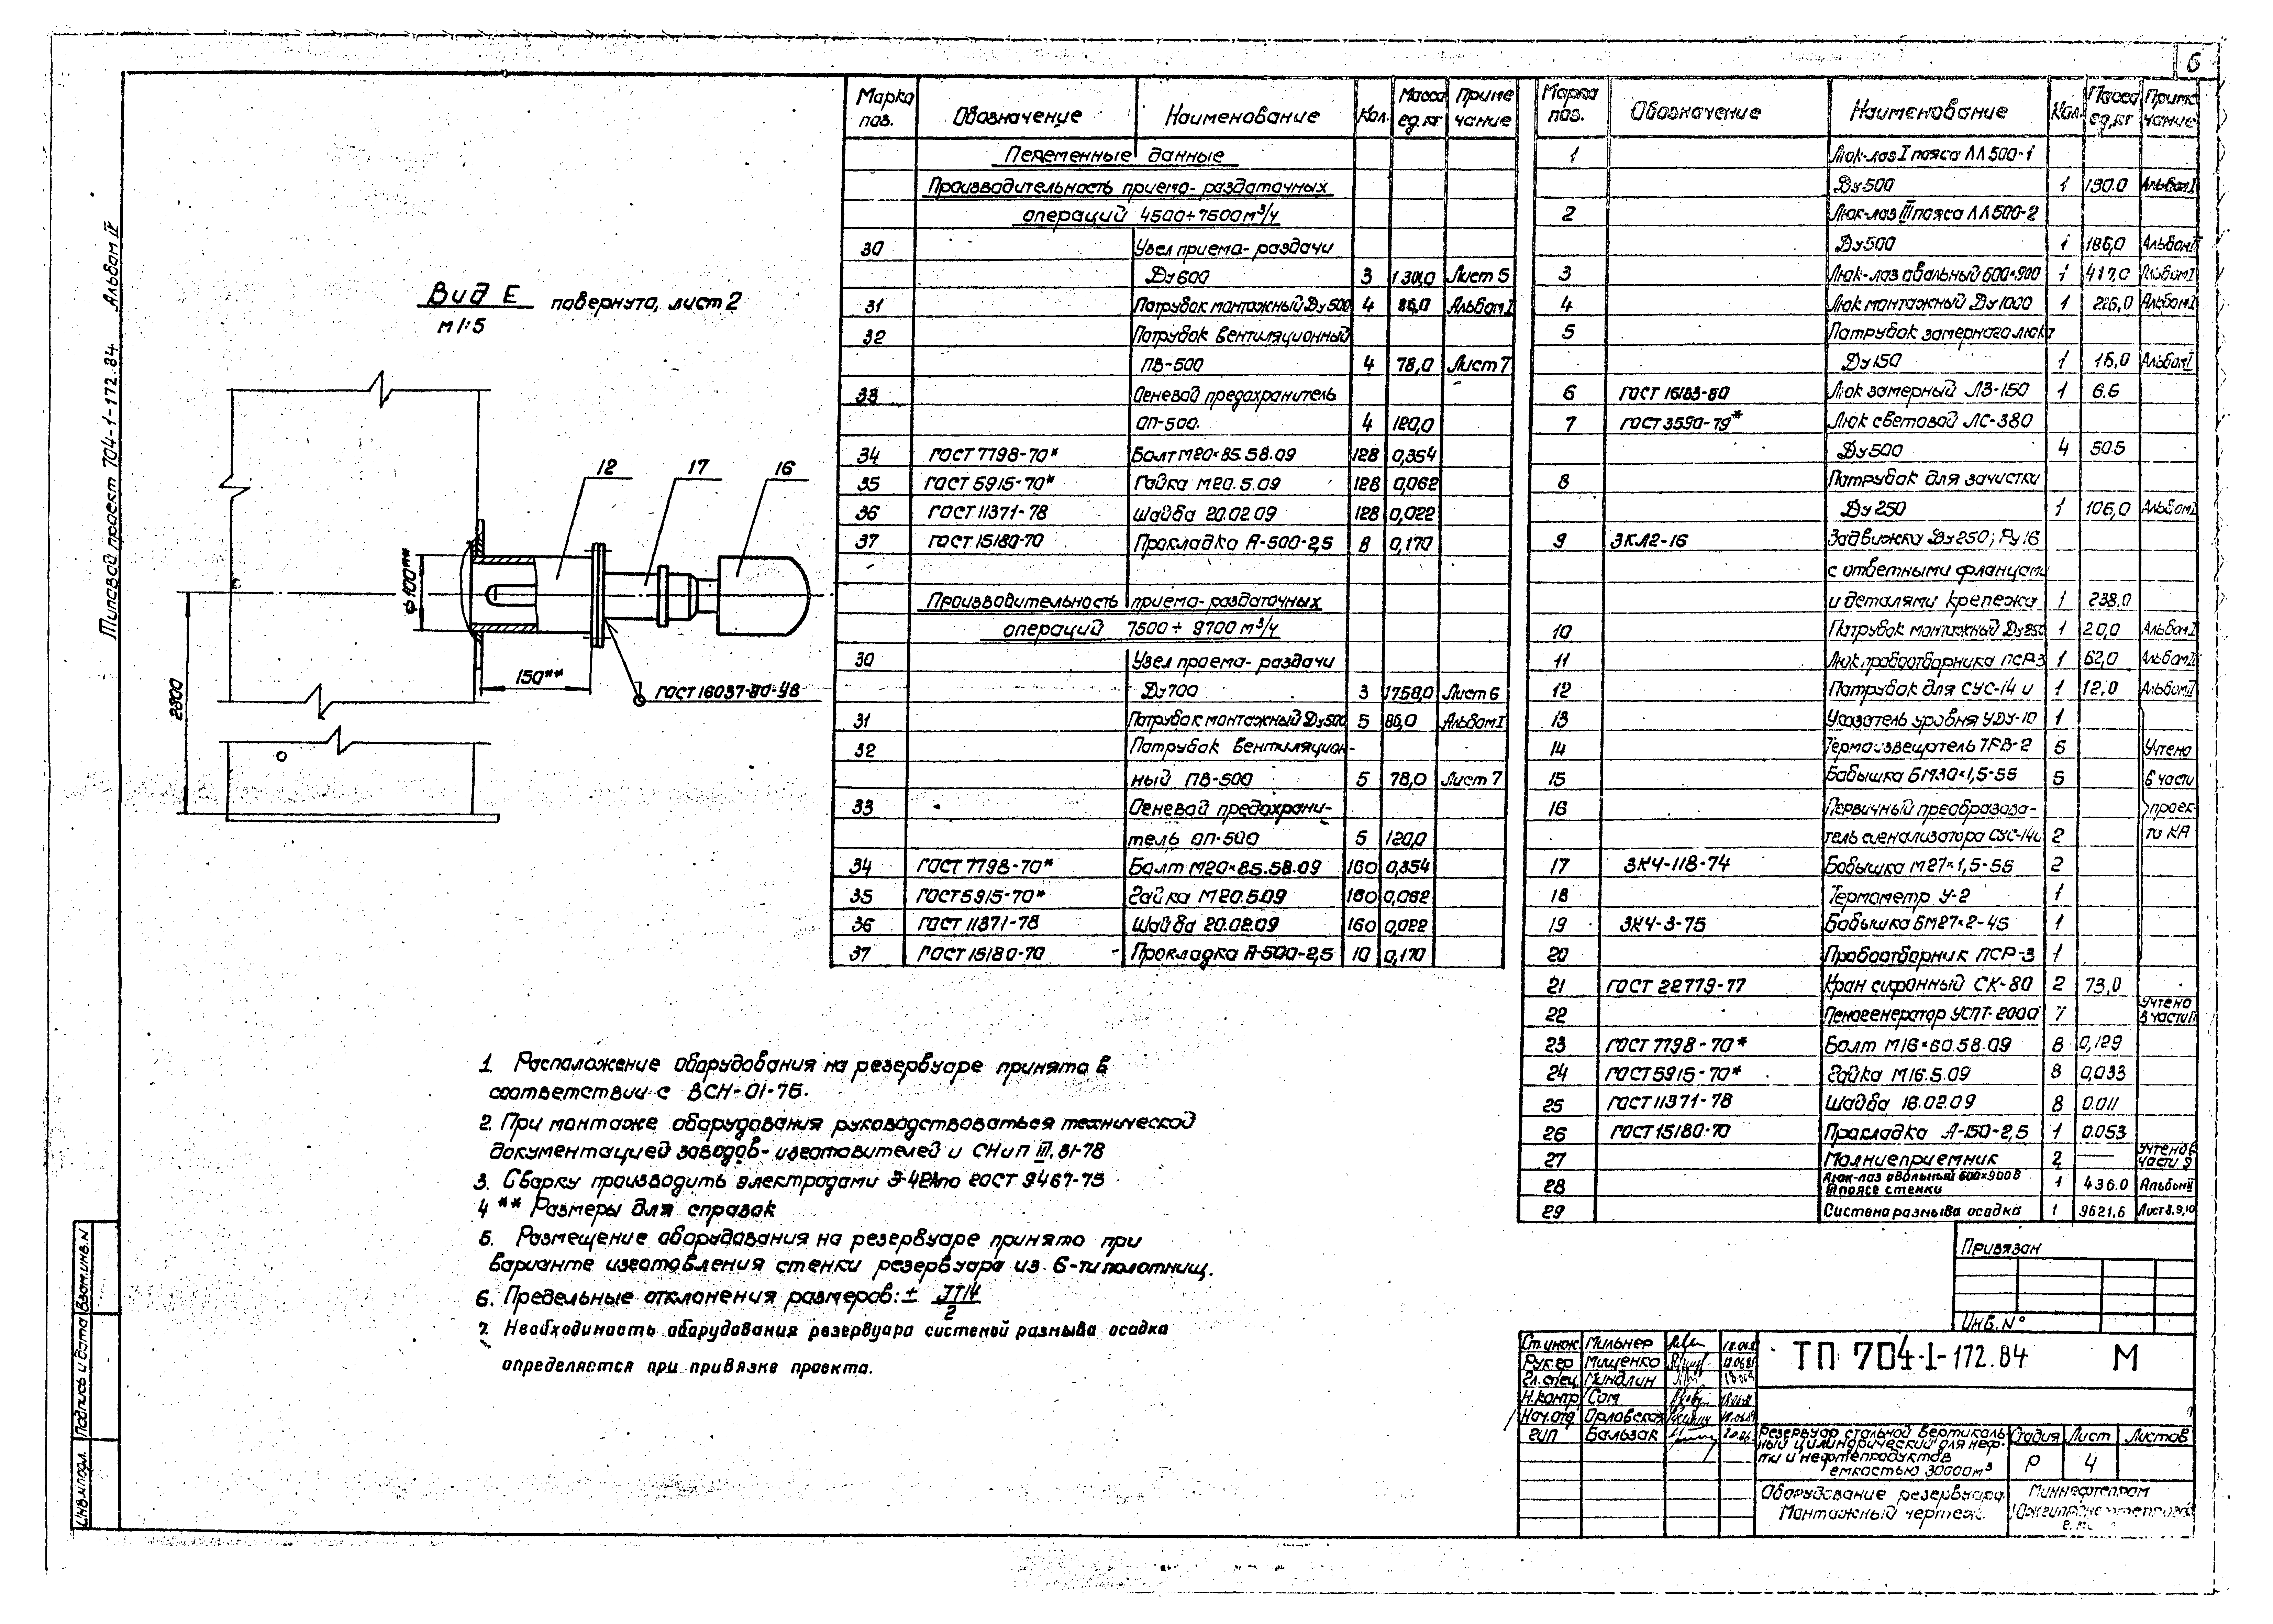 6
Типовой проект 704-1-172.84 Альбом IV
Вид Е повернуто, лист 2
М 1:5
12
17
16
ф100**
150**
ГОСТ 16037-80-У8
2800
Марка поз. Обозначение Наименование Кол. Масса ед.кг Примечание
Переменные данные
Производительность приемо-раздаточных
операций 4500÷7500 м³/ч
30 Узел приема-раздачи
Ду600 3 1301,0 Лист 5
31 Патрубок монтажный Ду500 4 86,0 Альбом I
32 Патрубок вентиляционный
ПВ-500 4 78,0 Лист 7
33 Огневой предохранитель
ОП-500. 4 120,0
34 ГОСТ 7798-70* Болт М20×85.58.09 128 0,354
35 ГОСТ 5915-70* Гайка М20.5.09 128 0,062
36 ГОСТ 11371-78 Шайба 20.02.09 128 0,022
37 ГОСТ 15180-70 Прокладка А-500-2,5 8 0,170
Производительность приемо-раздаточных
операций 7500÷9700 м³/ч
30 Узел приема-раздачи
Ду700 3 1758,0 Лист 6
31 Патрубок монтажный Ду500 5 86,0 Альбом I
32 Патрубок вентиляцион-
ный ПВ-500 5 78,0 Лист 7
33 Огневой предохрани-
тель ОП-500 5 120,0
34 ГОСТ 7798-70* Болт М20×85.58.09 160 0,354
35 ГОСТ 5915-70* Гайка М20.5.09 160 0,062
36 ГОСТ 11371-78 Шайба 20.02.09 160 0,022
37 ГОСТ 15180-70 Прокладка А-500-2,5 10 0,170
Марка поз. Обозначение Наименование Кол. Масса ед,кг Примечание
1 Люк-лаз I пояса ЛЛ500-1
Ду500 1 190.0 Альбом I
2 Люк-лаз III пояса ЛЛ500-2
Ду500 1 186,0 Альбом
3 Люк-лаз овальный 600×900 1 417,0 Альбом I
4 Люк монтажный Ду1000 1 226,0 Альбом I
5 Патрубок замерного люка
Ду150 1 16,0 Альбом I
6 ГОСТ 16133-80 Люк замерный ЛЗ-150 1 6.6
7 ГОСТ 3590-79* Люк световой ЛС-380
Ду500 4 50.5
8 Патрубок для зачистки
Ду250 1 106,0 Альбом I
9 ЗКЛ2-16 Задвижка Ду250; Ру16
с ответными фланцами
и деталями крепежа 1 238,0
10 Патрубок монтажный Ду250 1 20,0 Альбом I
11 Люк пробоотборника ПСР-3 1 62,0 Альбом
12 Патрубок для СУС-14 и 1 12,0 Альбом
13 Указатель уровня УДУ-10 1
14 Термоизвещатель ТРВ-2 5 Учтено
15 Бобышка БМ30×1,5-55 5 в части
16 Первичный преобразова- проек-
тель сигнализатора СУС-14и 2 та КА
17 ЗК4-118-74 Бобышка М27×1,5-55 2
18 Термометр У-2 1
19 ЗК4-3-75 Бобышка БМ27×2-45 1
20 Пробоотборник ПСР-3 1
21 ГОСТ 22779-77 Кран сифонный СК-80 2 73,0
22 Пеногенератор УСПТ-2000 7 Учтено в части
23 ГОСТ 7798-70* Болт М16×60.58.09 8 0,129
24 ГОСТ 5915-70* Гайка М16.5.09 8 0,033
25 ГОСТ 11371-78 Шайба 16.02.09 8 0.011
26 ГОСТ 15180-70 Прокладка А-150-2,5 1 0.053
27 Молниеприемник 2 — Учтено в части 9
28 Люк-лаз овальный 600×900 в поясе стенки 1 436.0 Альбом
29 Система размыва осадка 1 9621,6 Лист 8,9,10
1 Расположение оборудования на резервуаре принято в
соответствии с ВСН-01-75.
2. При монтаже оборудования руководствоваться технической
документацией заводов-изготовителей и СНиП III.31-78
3. Сварку производить электродами Э-42А по ГОСТ 9467-75
4 ** Размеры для справок
5. Размещение оборудования на резервуаре принято при
варианте изготовления стенки резервуара из 6-ти полотнищ.
6. Предельные отклонения размеров: ± JT14/2
7. Необходимость оборудования резервуара системой размыва осадка
определяется при привязке проекта.
Привязан
Инв.N°
Ст.инж. Мильнер
Рук.гр Мищенко
Гл.спец. Миндлин
Н.контр. Сом
Нач.отд Орловская
ГИП Бальзак
ТП 704-1-172.84 М
Резервуар стальной вертикаль-
ный цилиндрический для неф-
ти и нефтепродуктов
емкостью 30000м³
Стадия Лист Листов
Р 4
Оборудование резервуара.
Монтажный чертеж.
Миннефтепром
Инв.N подл. Подпись и дата Взам.инв.N